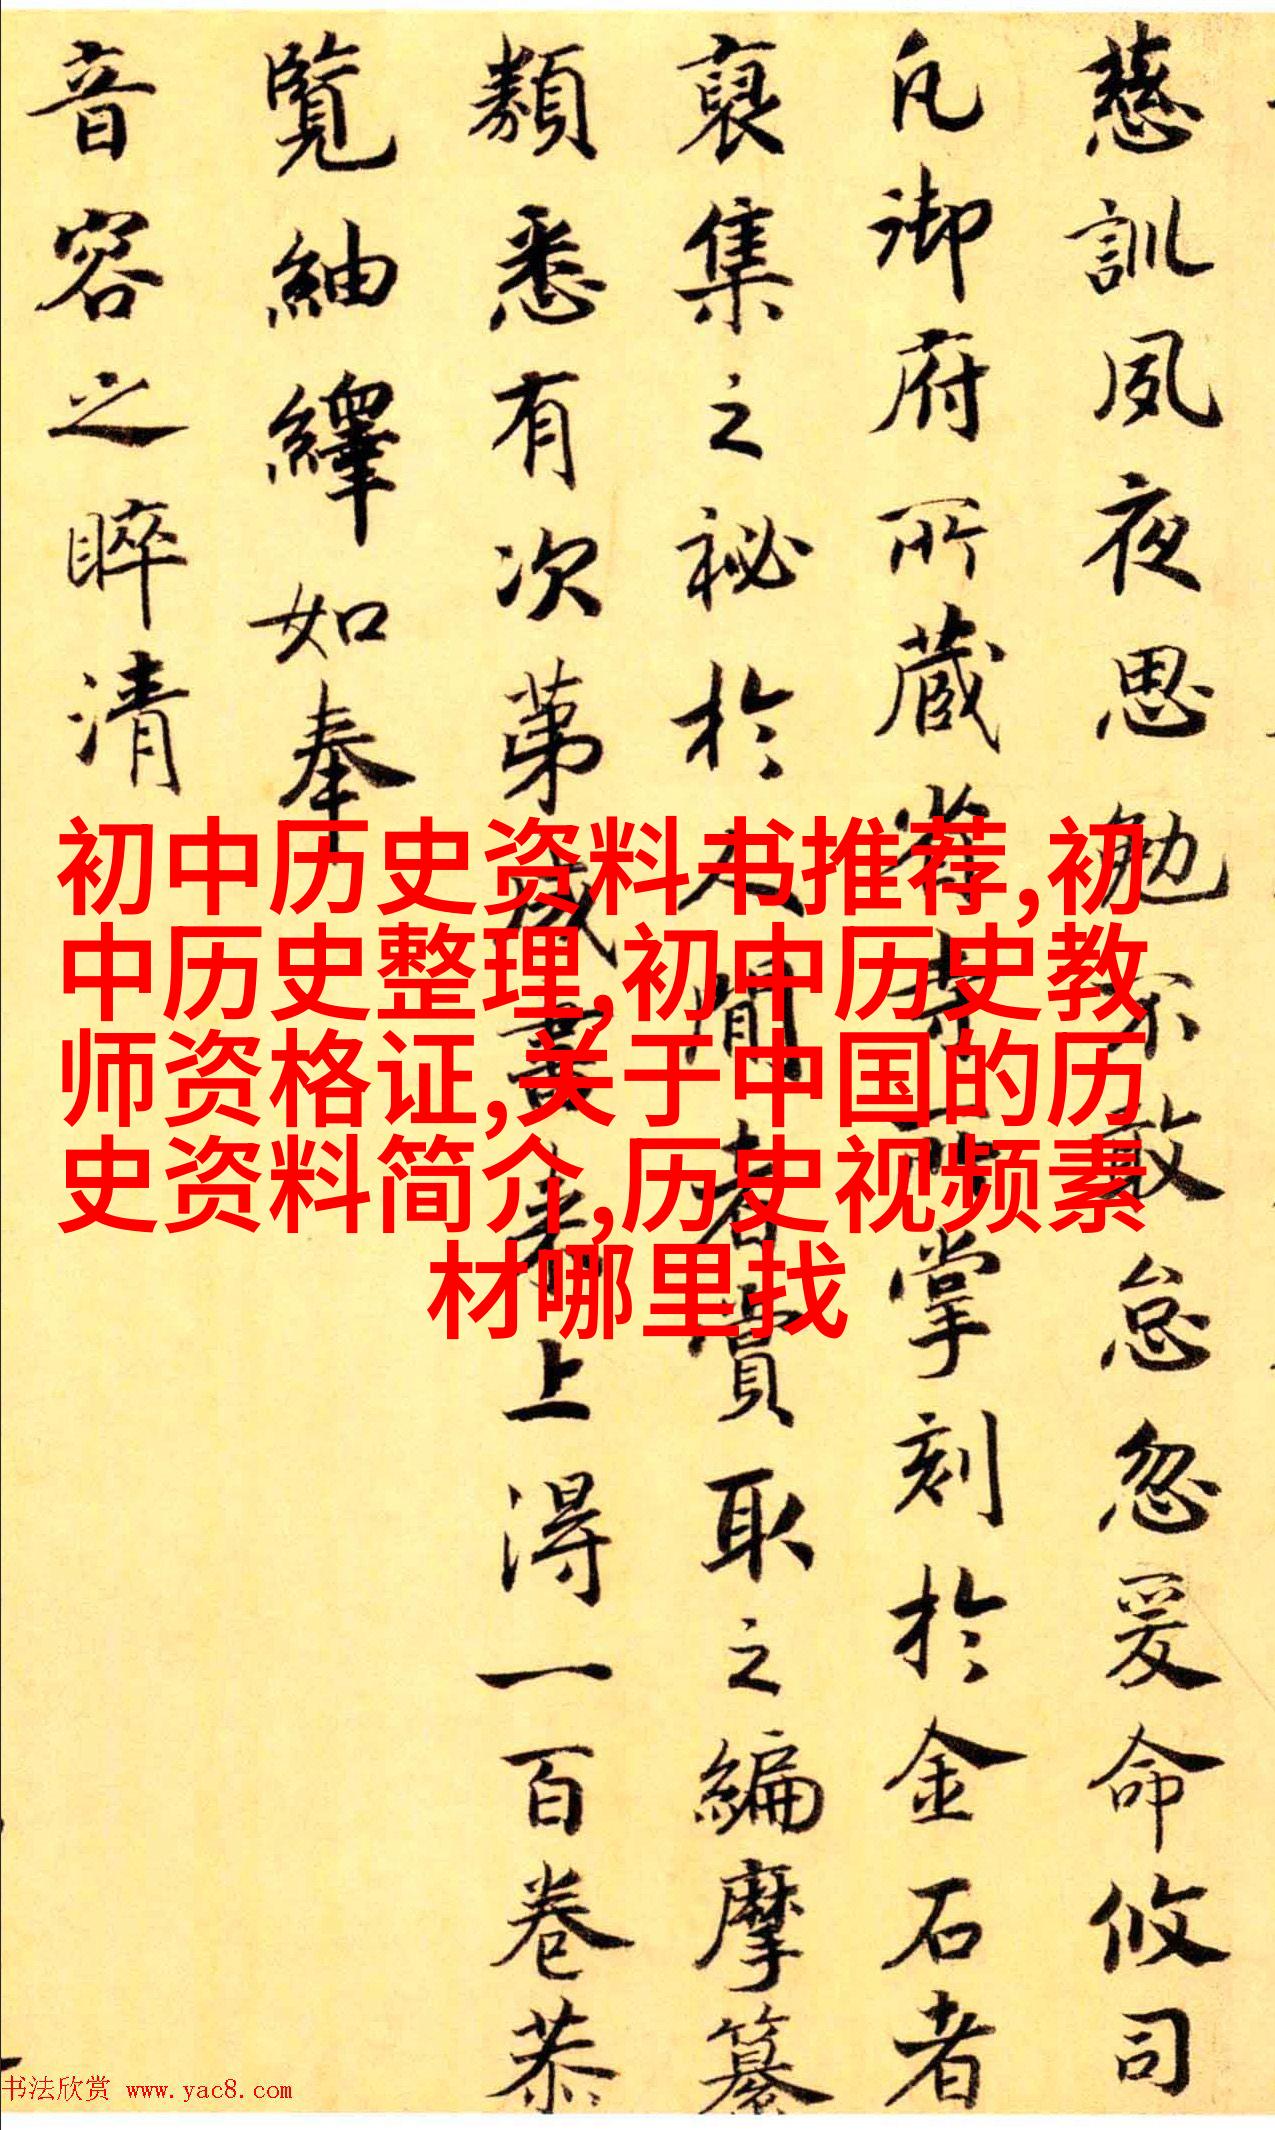 慈訓夙夜思勉不敢怠忽爰命攸司
凡御府所藏
掌刻於金石者
裒集之祕於人間者賞取之編摩纂
類悉有次第成書來上得一百卷恭
覽紬繹如奉
音容之睟清
初中历史资料书推荐,初
中历史整理,初中历史教
师资格证,关于中国的历
史资料简介,历史视频素
材哪里找
书法欣赏 www.yac8.com